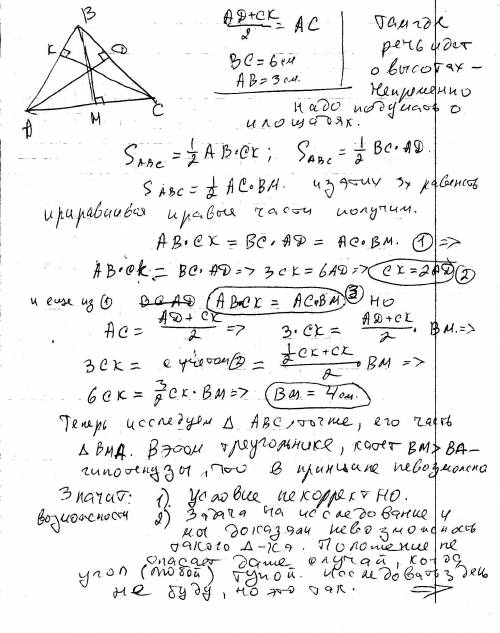 B
K
D
A
M
C
(AD+CK)/2 = AC
BC=6см
AB=3см.
Там где
речь идет
о высотах –
непременно
надо подумать о
площадях.
S_ABC = 1/2 AB·CK; S_ABC = 1/2 BC·AD.
S_ABC = 1/2 AC·BM. из этих 3х равенств
приравнивая правые части получим.
AB·CK = BC·AD = AC·BM. ① =>
AB·CK = BC·AD => 3CK = 6AD => CK=2AD ②
и еще из ① BC·AD AB·CK = AC·BM ③ но
AC = (AD+CK)/2 => 3·CK = (AD+CK)/2 · BM =>
3CK = с учетом ② = (1/2CK+CK)/2 · BM =>
6CK = 3/2 CK·BM => BM = 4см.
Теперь исследуем Δ ABC, точнее, его часть
Δ BMA. В этом треугольнике, катет BM > BA –
гипотенузы, что в принципе невозможно
Значит: 1) Условие некорректно.
возможности 2) Задача на исследование и
мы доказали невозможность
такого Δ-ка. Положение не
спасает даже случай, когда
угол (любой) тупой. исследовать здесь
не буду, но это так. =>